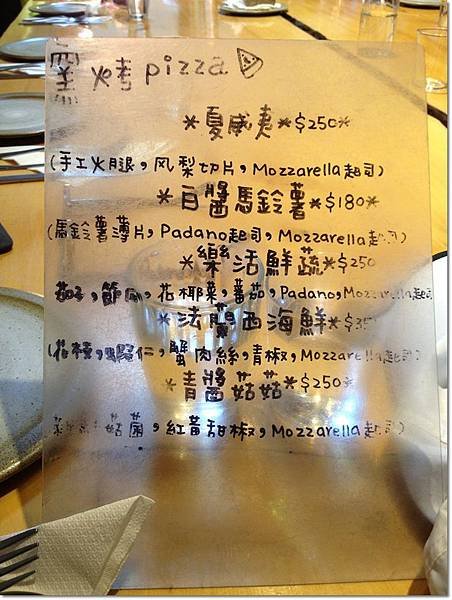 窯烤pizza
*夏威夷*$250*
(手工火腿，鳳梨切片，Mozzarella起司)
*白醬馬鈴薯*$180*
(馬鈴薯薄片，Padano起司，Mozzarella起司)
*樂活鮮蔬*$250
茄子，節瓜，花椰菜，蕃茄，Padano，Mozzarella起司
*法蘭西海鮮*$35
(花枝，蝦仁，蟹肉絲，青椒，Mozzarella起司)
*青醬菇菇*$250*
菇菌，紅黃甜椒，Mozzarella起司)